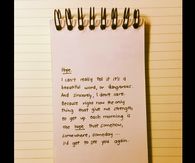 Hope
I can't really tell if it's a
beautiful word, or dangerous.
And sincerely, I don't care.
Because right now the only
thing that give me strength
to get up each morning is
the hope that somehow,
somewhere, someday...
I'd get to see you again.